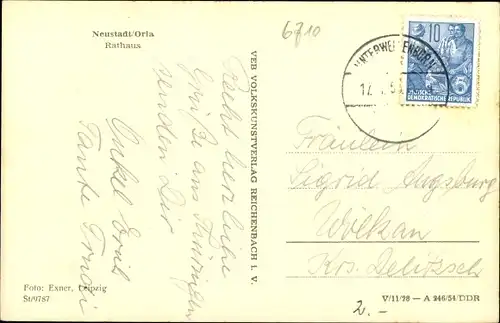 Neustadt/Orla
Rathaus
6710
10
DEUTSCHE
DEMOKRATISCHE REPUBLIK
5
UNTERWELLENBORN
VEB VOLKSKUNSTVERLAG REICHENBACH I. V.
Recht herzliche
Grüße aus Thüringen
senden Dir
Onkel Emil
Tante Trudi
Fräulein
Sigrid Augsburg
Wölkau
Krs. Delitzsch
Foto: Exner, Leipzig
St/9787
V/11/28 — A 246/54/DDR
2.-